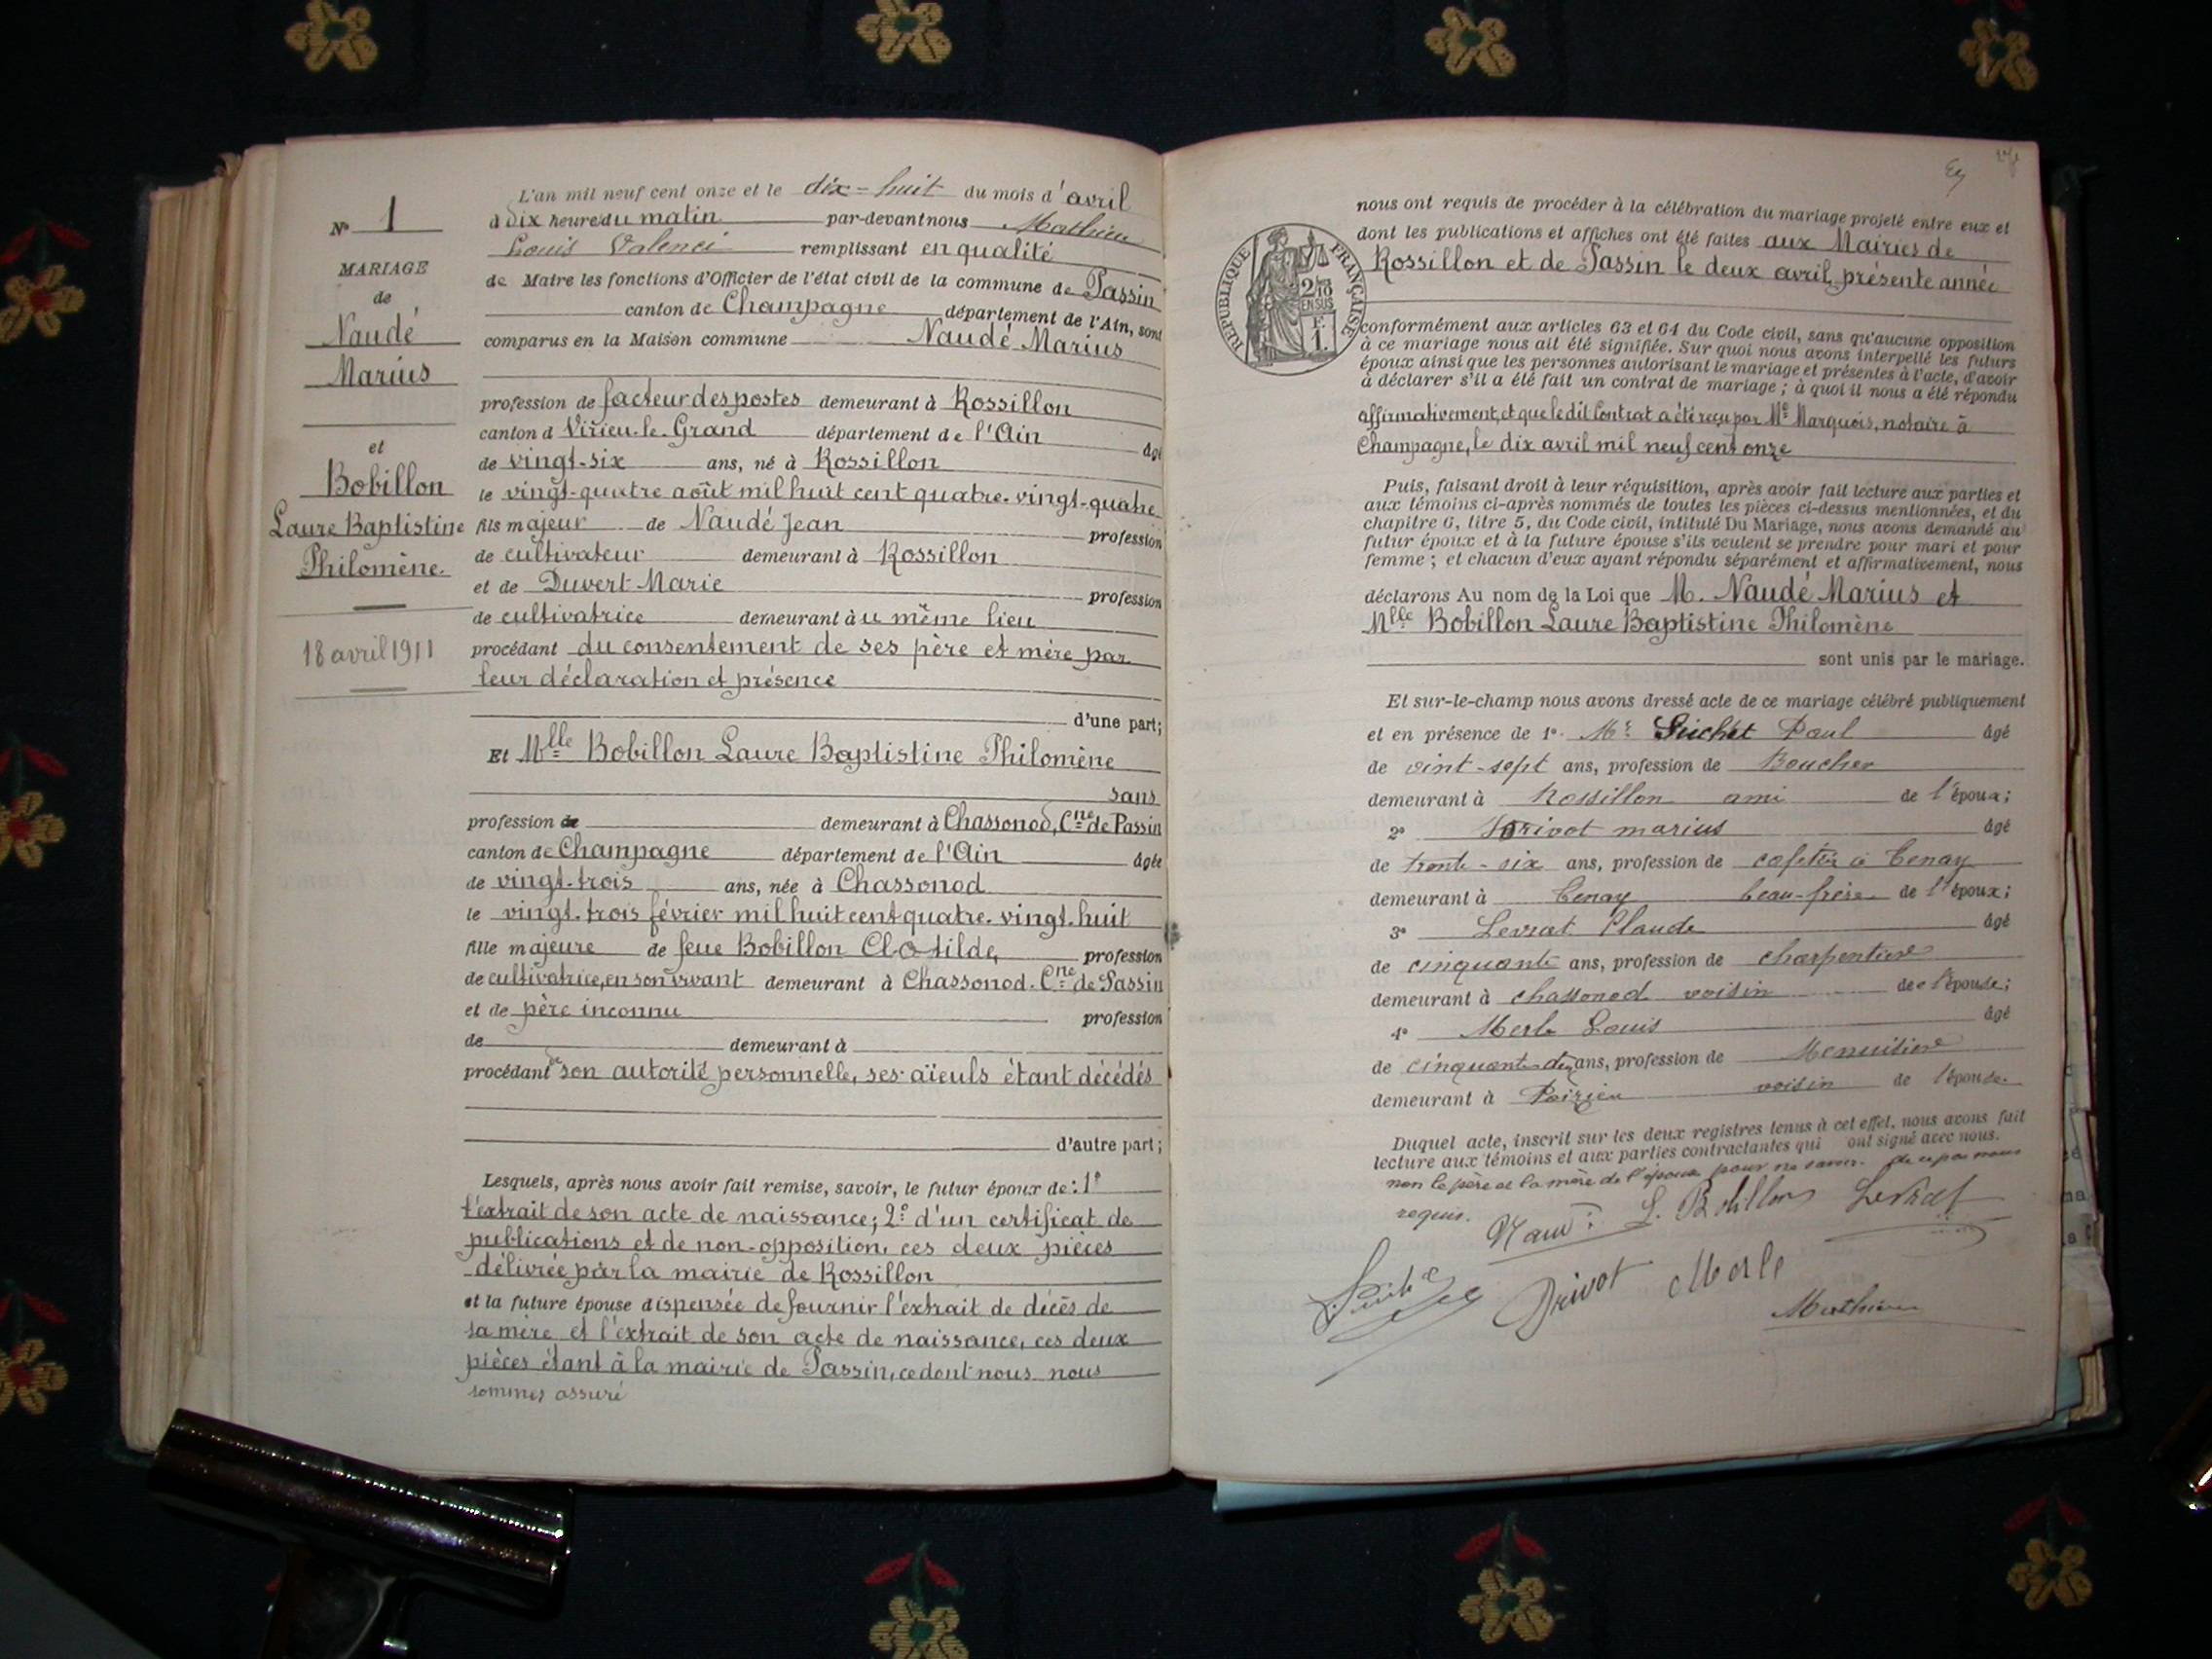 N° 1
MARIAGE
de
Naudé
Marius
et
Bobillon
Laure Baptistine
Philomène.
18 avril 1911
L'an mil neuf cent onze et le dix-huit du mois d'avril
à dix heures du matin par-devant nous Mathieu
Louis remplissant en qualité
de Maire les fonctions d'Officier de l'état civil de la commune de Passin
canton de Champagne département de l'Ain, sont
comparus en la Maison commune Naudé Marius
profession de facteur des postes demeurant à Rossillon
canton d Virieu-le-Grand département de l'Ain âgé
de vingt-six ans, né à Rossillon
le vingt-quatre août mil huit cent quatre-vingt-quatre
fils majeur de Naudé Jean profession
de cultivateur demeurant à Rossillon
et de Duvert Marie profession
de cultivatrice demeurant à u même lieu
procédant du consentement de ses père et mère par
leur déclaration et présence
d'une part;
Et Mlle Bobillon Laure Baptistine Philomène
sans
profession de demeurant à Chassonod, Cne de Passin
canton de Champagne département de l'Ain âgée
de vingt-trois ans, née à Chassonod
le vingt-trois février mil huit cent quatre-vingt-huit
fille majeure de feue Bobillon Clotilde, profession
de cultivatrice, en son vivant demeurant à Chassonod. Cne de Passin
et de père inconnu profession
de demeurant à
procédant de son autorité personnelle, ses aïeuls étant décédés
d'autre part;
Lesquels, après nous avoir fait remise, savoir, le futur époux de : 1°
l'extrait de son acte de naissance; 2° d'un certificat de
publications et de non-opposition, ces deux pièces
délivrée par la mairie de Rossillon
et la future épouse dispensée de fournir l'extrait de décès de
sa mère et l'extrait de son acte de naissance, ces deux
pièces étant à la mairie de Passin, ce dont nous nous
sommes assuré
RÉPUBLIQUE FRANÇAISE
2/10
EN SUS
F.
1.
nous ont requis de procéder à la célébration du mariage projeté entre eux et
dont les publications et affiches ont été faites aux Mairies de
Rossillon et de Passin le deux avril, présente année
conformément aux articles 63 et 64 du Code civil, sans qu'aucune opposition
à ce mariage nous ait été signifiée. Sur quoi nous avons interpellé les futurs
époux ainsi que les personnes autorisant le mariage et présentes à l'acte, d'avoir
à déclarer s'il a été fait un contrat de mariage ; à quoi il nous a été répondu
affirmativement, et que le dit Contrat a été reçu par Me Marquois, notaire à
Champagne, le dix avril mil neuf cent onze
Puis, faisant droit à leur réquisition, après avoir fait lecture aux parties et
aux témoins ci-après nommés de toutes les pièces ci-dessus mentionnées, et du
chapitre 6, titre 5, du Code civil, intitulé Du Mariage, nous avons demandé au
futur époux et à la future épouse s'ils veulent se prendre pour mari et pour
femme ; et chacun d'eux ayant répondu séparément et affirmativement, nous
déclarons Au nom de la Loi que M. Naudé Marius et
Mlle Bobillon Laure Baptistine Philomène
sont unis par le mariage.
Et sur-le-champ nous avons dressé acte de ce mariage célébré publiquement
et en présence de 1° Mr Paul âgé
de vint-sept ans, profession de Boucher
demeurant à Rossillon ami de l'époux;
2° Drivot marius âgé
de trente-six ans, profession de à Tenay
demeurant à Tenay beau-frère de l'époux;
3° Levrat Claude âgé
de cinquante ans, profession de charpentier
demeurant à chassonod voisin de l'épouse;
4° Merle Louis âgé
de cinquante ans, profession de Menuisier
demeurant à Poizieu voisin de l'épouse.
Duquel acte, inscrit sur les deux registres tenus à cet effet, nous avons fait
lecture aux témoins et aux parties contractantes qui ont signé avec nous.
non le père et la mère de l'époux pour ne savoir. de ce par nous
requis. Naudé L. Bobillon Levrat
Drivot Merle
Mathieu